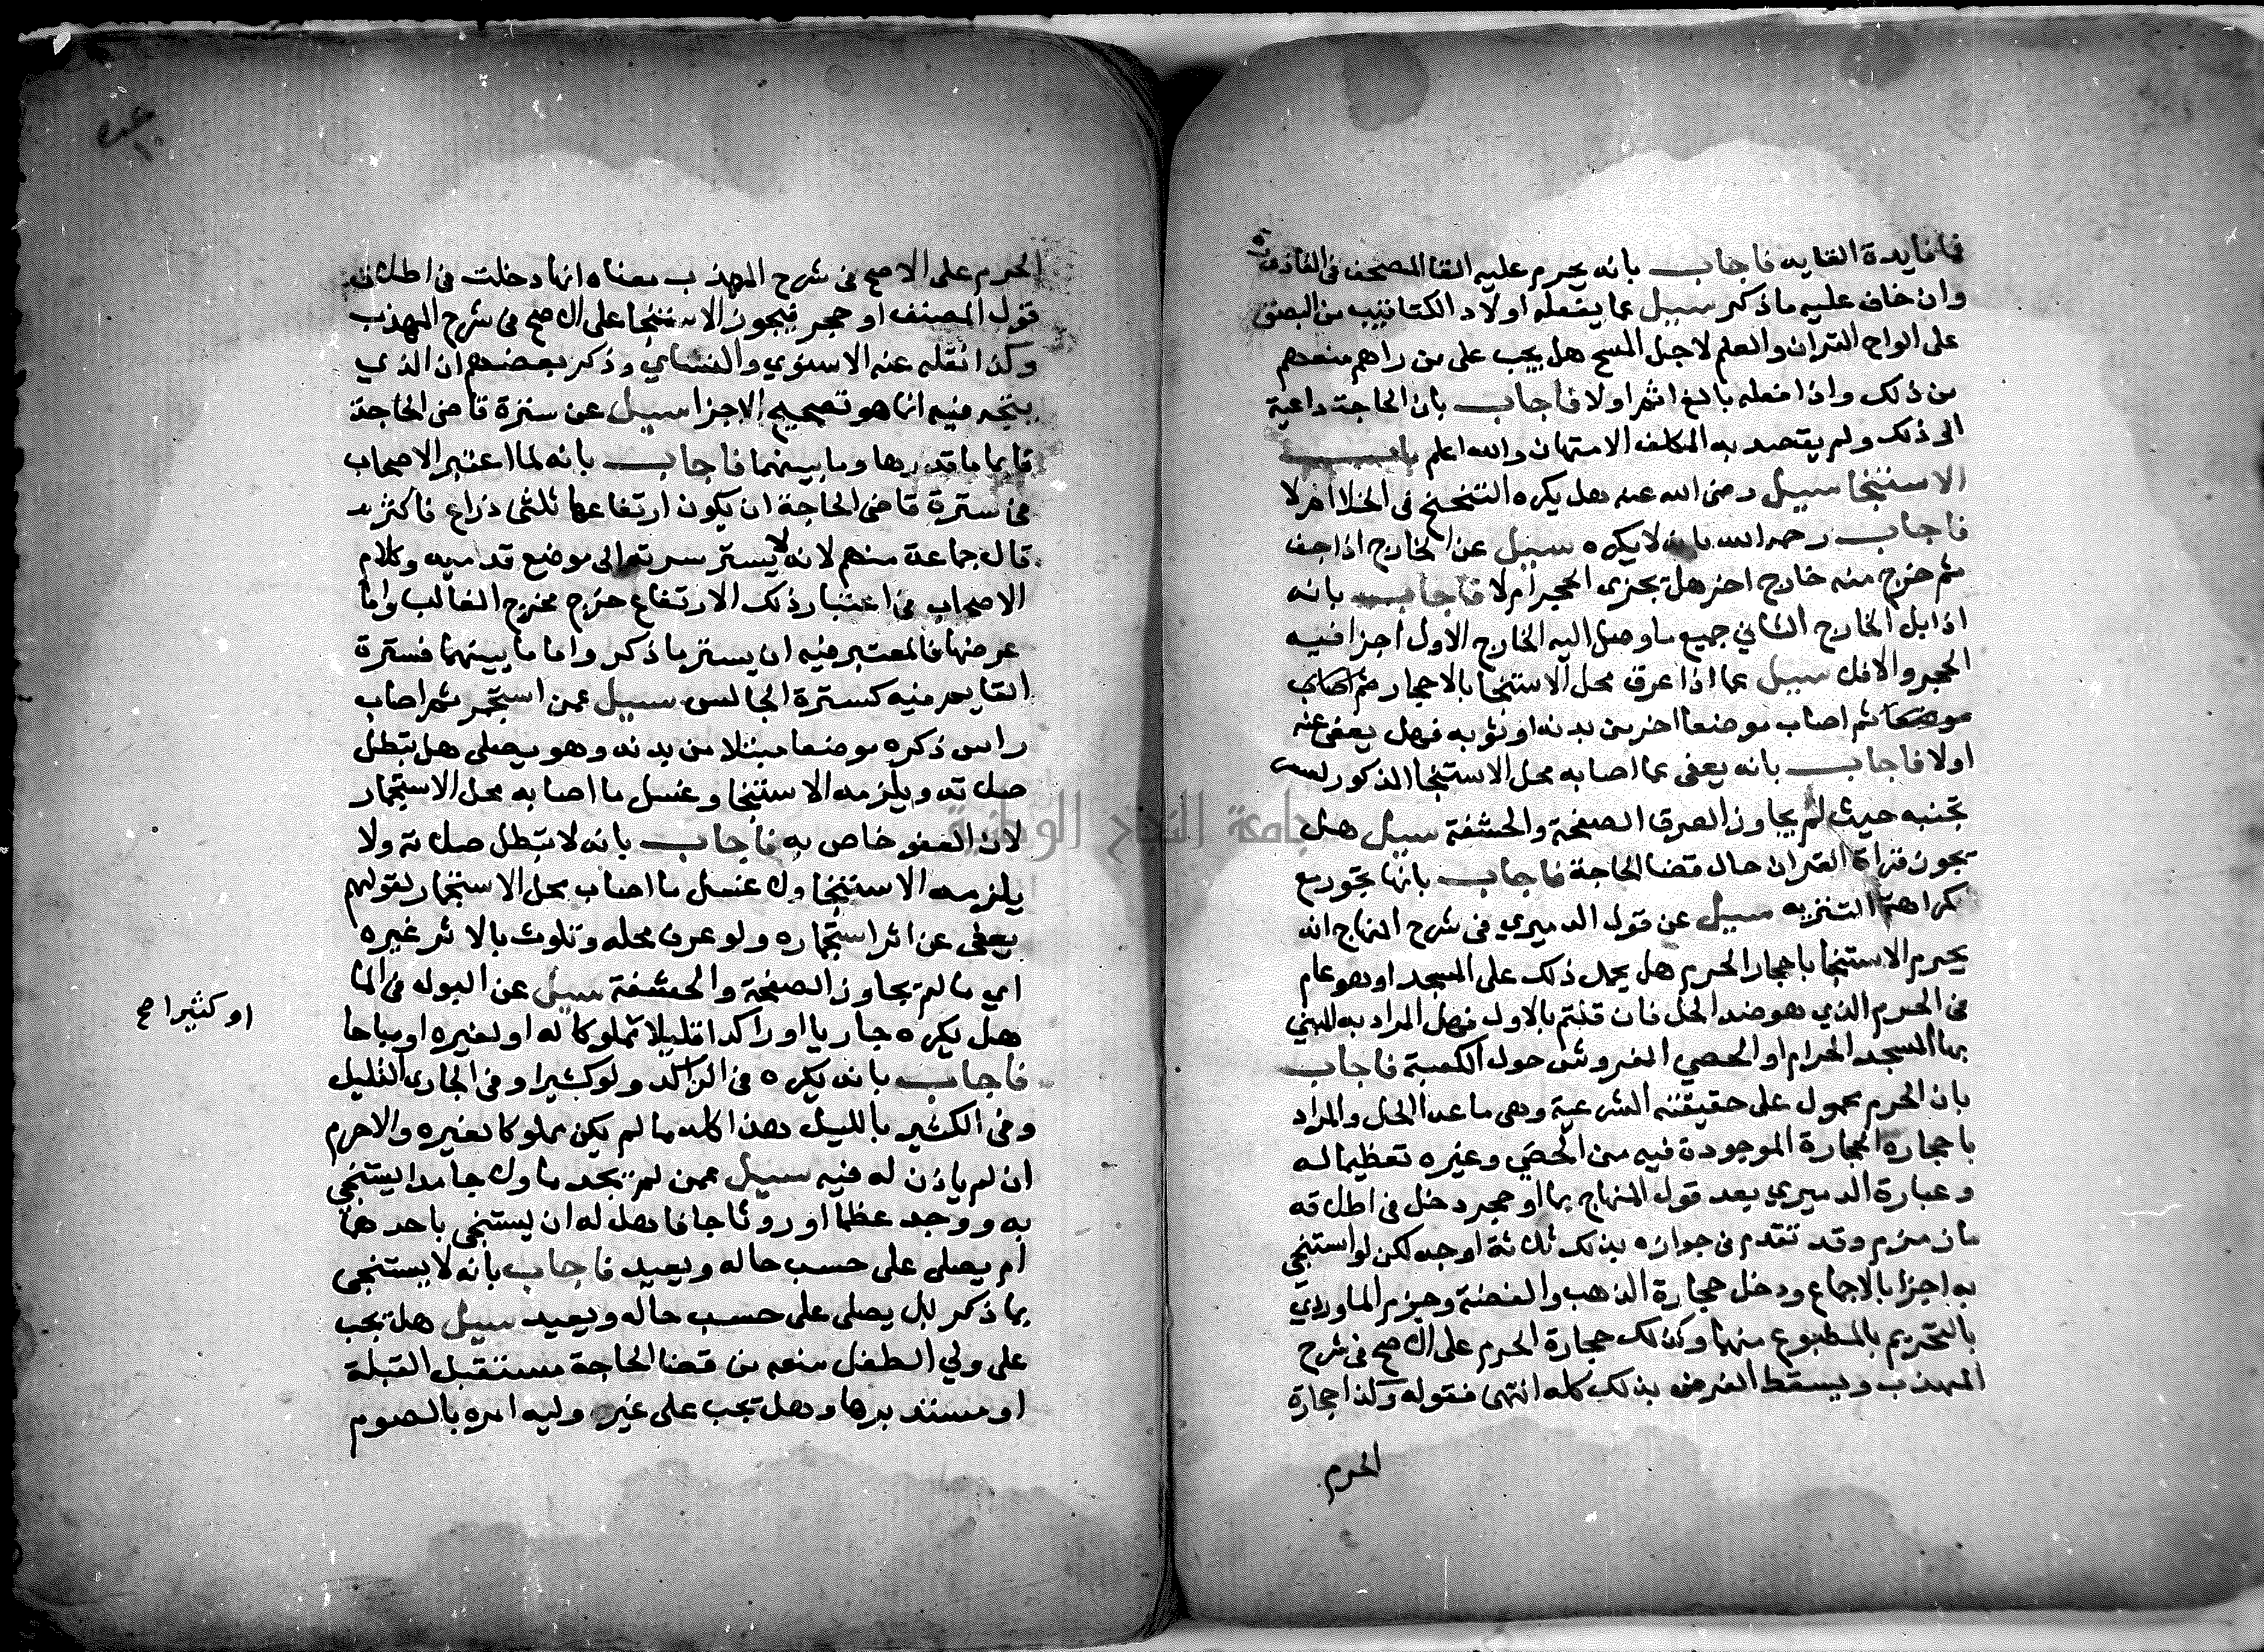 فما فايدة القايه فاجاب بانه يحرم عليه القا المصحف في القاذورة
وان خاف عليه ما ذكر سيل عما يفعله اولاد الكتاتيب من البصق
على الواح القران والعلم لاجل المسح هل يجب على من راهم منعهم
من ذلك واذا فعله بالغ اثم اولا فاجاب بان الحاجة داعية
الى ذلك ولم يقصد به المكلف الامتهان والله اعلم باب
الاستنجا سيل رضى الله عنه هل يكره التنحنح في الخلا ام لا
فاجاب رحمه الله بانه لا يكره سيل عن الخارج اذا جف
ثم خرج منه خارج اخر هل يجزى الحجر ام لا فاجاب بانه
اذا بل الخارج الثاني جميع ما وصل اليه الخارج الاول اجزا فيه
الحجر والا فلا سيل عما اذا عرق محل الاستنجا بالاحجار ثم اصاب
موضعا ثم اصاب موضعا اخر من بدنه او ثوبه فهل يعفى عنه
اولا فاجاب بانه يعفى عما اصابه محل الاستنجا المذكور لعسر
تجنبه حيث لم يجاوز العرق الصفحة والحشفة سيل هل
يجوز قراة القران حال قضا الحاجة فاجاب بانها تجوز مع
كراهة التنزيه سيل عن قول الدميري في شرح المنهاج انه
يحرم الاستنجا باحجار الحرم هل يحمل ذلك على المسجد او هو عام
في الحرم الذي هو ضد الحل فان قلتم بالاول فهل المراد به المبني
بها المسجد الحرام او الحصي المفروش حول الكعبة فاجاب
بان الحرم محمول على حقيقته الشرعية وهى ما عدا الحل والمراد
باحجاره الحجارة الموجودة فيه من الحصى وغيره تعظيما له
وعبارة الدميري بعد قول المنهاج بما او حجر دخل في اطلاقه
ما زمزم وقد تقدم في جوازه بذلك ثلاثة اوجه لكن لو استنجى
به اجزا بالاجماع ودخل حجارة الذهب والفضة وجزم الماوردي
بالتحريم بالمطبوع منهما وكذلك حجارة الحرم على الاصح في شرح
المهذب ويسقط الفرض بذلك كله انتهى فقوله وكذا حجارة
الحرم
الحرم على الاصح في شرح المهذب معناه انها دخلت في اطلاق
قول المصنف او حجر فيجوز الاستنجا على الاصح في شرح المهذب
وكذا نقله عنه الاسنوي والنشاي وذكر بعضهم ان الذي
يتجه فيه انما هو تصحيح الاجزا سيل عن سترة قاضى الحاجة
قايما ما قدرها وما بينهما فاجاب بانه لما اعتبر الاصحاب
في سترة قاضى الحاجة ان يكون ارتفاعها ثلثى ذراع فاكثر
قال جماعة منهم لانه يستر سرته الى موضع قدميه وكلام
الاصحاب في اعتبار ذلك الارتفاع خرج مخرج الغالب واما
عرضها فالمعتبر فيه ان يستر ما ذكر واما ما بينهما فسترة
القايم فيه كسترة الجالس سيل عمن استجمر ثم اصاب
راس ذكره موضعا مبتلا من بدنه وهو يصلى هل تبطل
صلاته ويلزمه الاستنجا وغسل ما اصابه محل الاستجمار
لان العفو خاص به فاجاب بانه لا تبطل صلاته ولا
يلزمه الاستنجا ولا غسل ما اصاب محل الاستنجمار لقولهم
يعفى عن اثر استجماره ولو عرق محله وتلوث بالاثر غيره
اي ما لم يجاوز الصفحة والحشفة سيل عن البول في الما
هل يكره جاريا او راكدا قليلا مملوكا له او لغيره او مباحا
او كثيرا صح
فاجاب بانه يكره في الراكد ولو كثيرا وفى الجارى القليل
وفى الكثير بالليل هذا كله ما لم يكن مملوكا لغيره والا حرم
ان لم ياذن له فيه سيل عمن لم يجد ما ولا جامدا يستنجى
به ووجد عظما او روثا جافا هل له ان يستنجى باحدهما
ام يصلى على حسب حاله ويعيد فاجاب بانه لا يستنجى
بما ذكر بل يصلى على حسب حاله ويعيد سيل هل يجب
على ولي الطفل منعه من قضا الحاجة مستقبل القبلة
او مستدبرها وهل يجب على غير وليه امره بالصوم
جامعة النجاح الوطنية